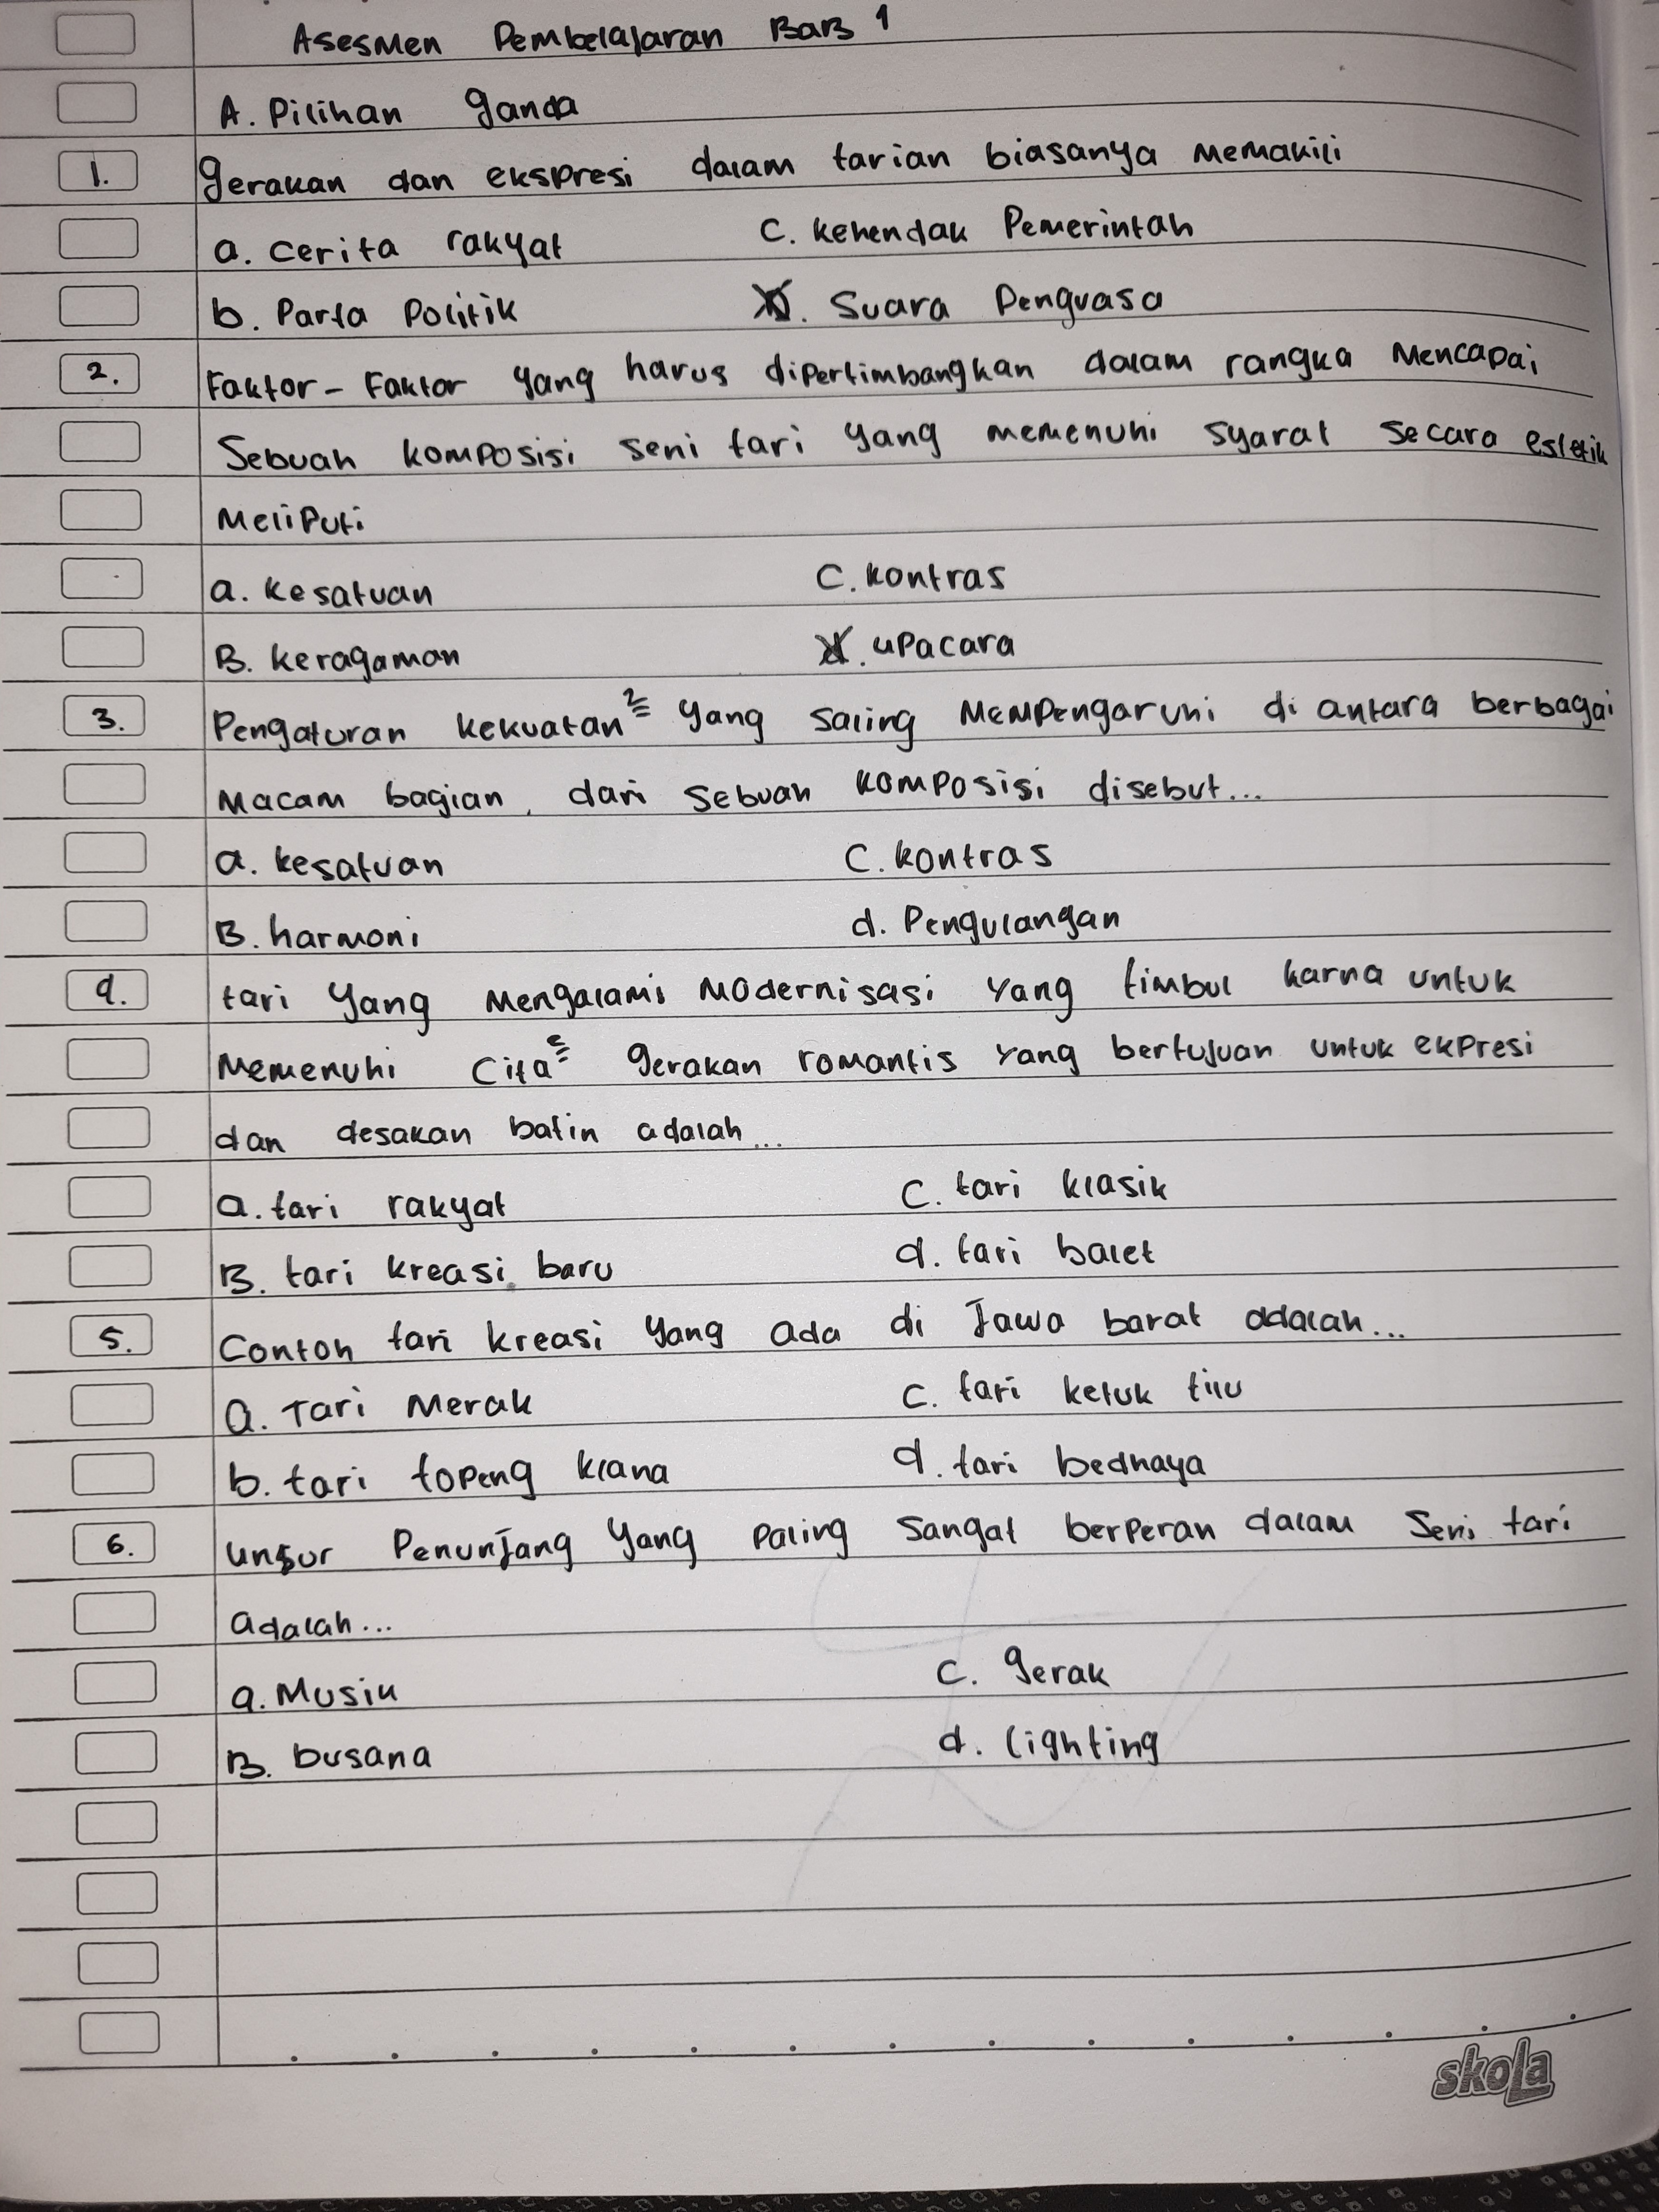 Asesmen Pembelajaran Bab 1
A. Pilihan ganda
1. gerakan dan ekspresi dalam tarian biasanya memakili
a. cerita rakyat c. kehendak Pemerintah
b. Parta Politik d. Suara Penguasa
2. Faktor - Faktor yang harus dipertimbangkan dalam rangka Mencapai
Sebuah komposisi seni tari yang memenuhi syarat secara estetik
Meliputi
a. kesatuan c. kontras
B. keragaman d. upacara
3. Pengaturan kekuatan² yang saling Mempengaruhi di antara berbagai
Macam bagian, dari sebuah komposisi disebut...
a. kesatuan c. kontras
B. harmoni d. Pengulangan
4. tari yang Mengalami Modernisasi yang timbul karna untuk
Memenuhi Cita² gerakan romantis yang bertujuan untuk ekpresi
dan desakan batin adalah...
a. tari rakyat c. tari klasik
B. tari kreasi baru d. tari balet
5. Contoh tari kreasi yang ada di Jawa barat adalah...
a. Tari Merak c. tari ketuk tilu
b. tari topeng klana d. tari bedhaya
6. unsur Penunjang yang paling sangat berperan dalam Seni tari
adalah...
a. Musik c. gerak
B. busana d. lighting
skola